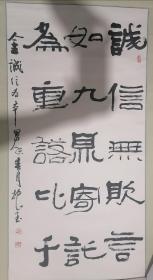 誠信無欺言
如九鼎寄託
為重諾比千
金 誠信为 春月 玉